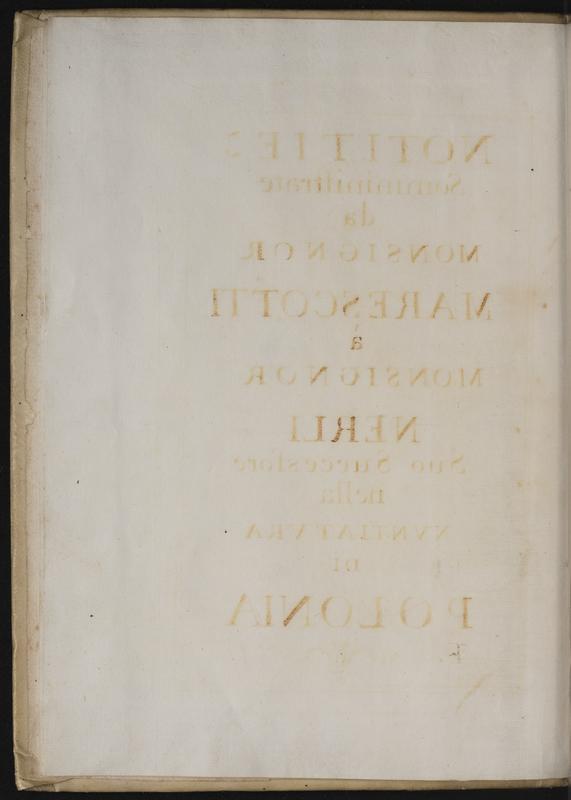 NOTITIE
Somministrate
da
MONSIGNOR
MARESCOTTI
à
MONSIGNOR
NERLI
Suo Successore
nella
NVNTIATVRA
DI
POLONIA